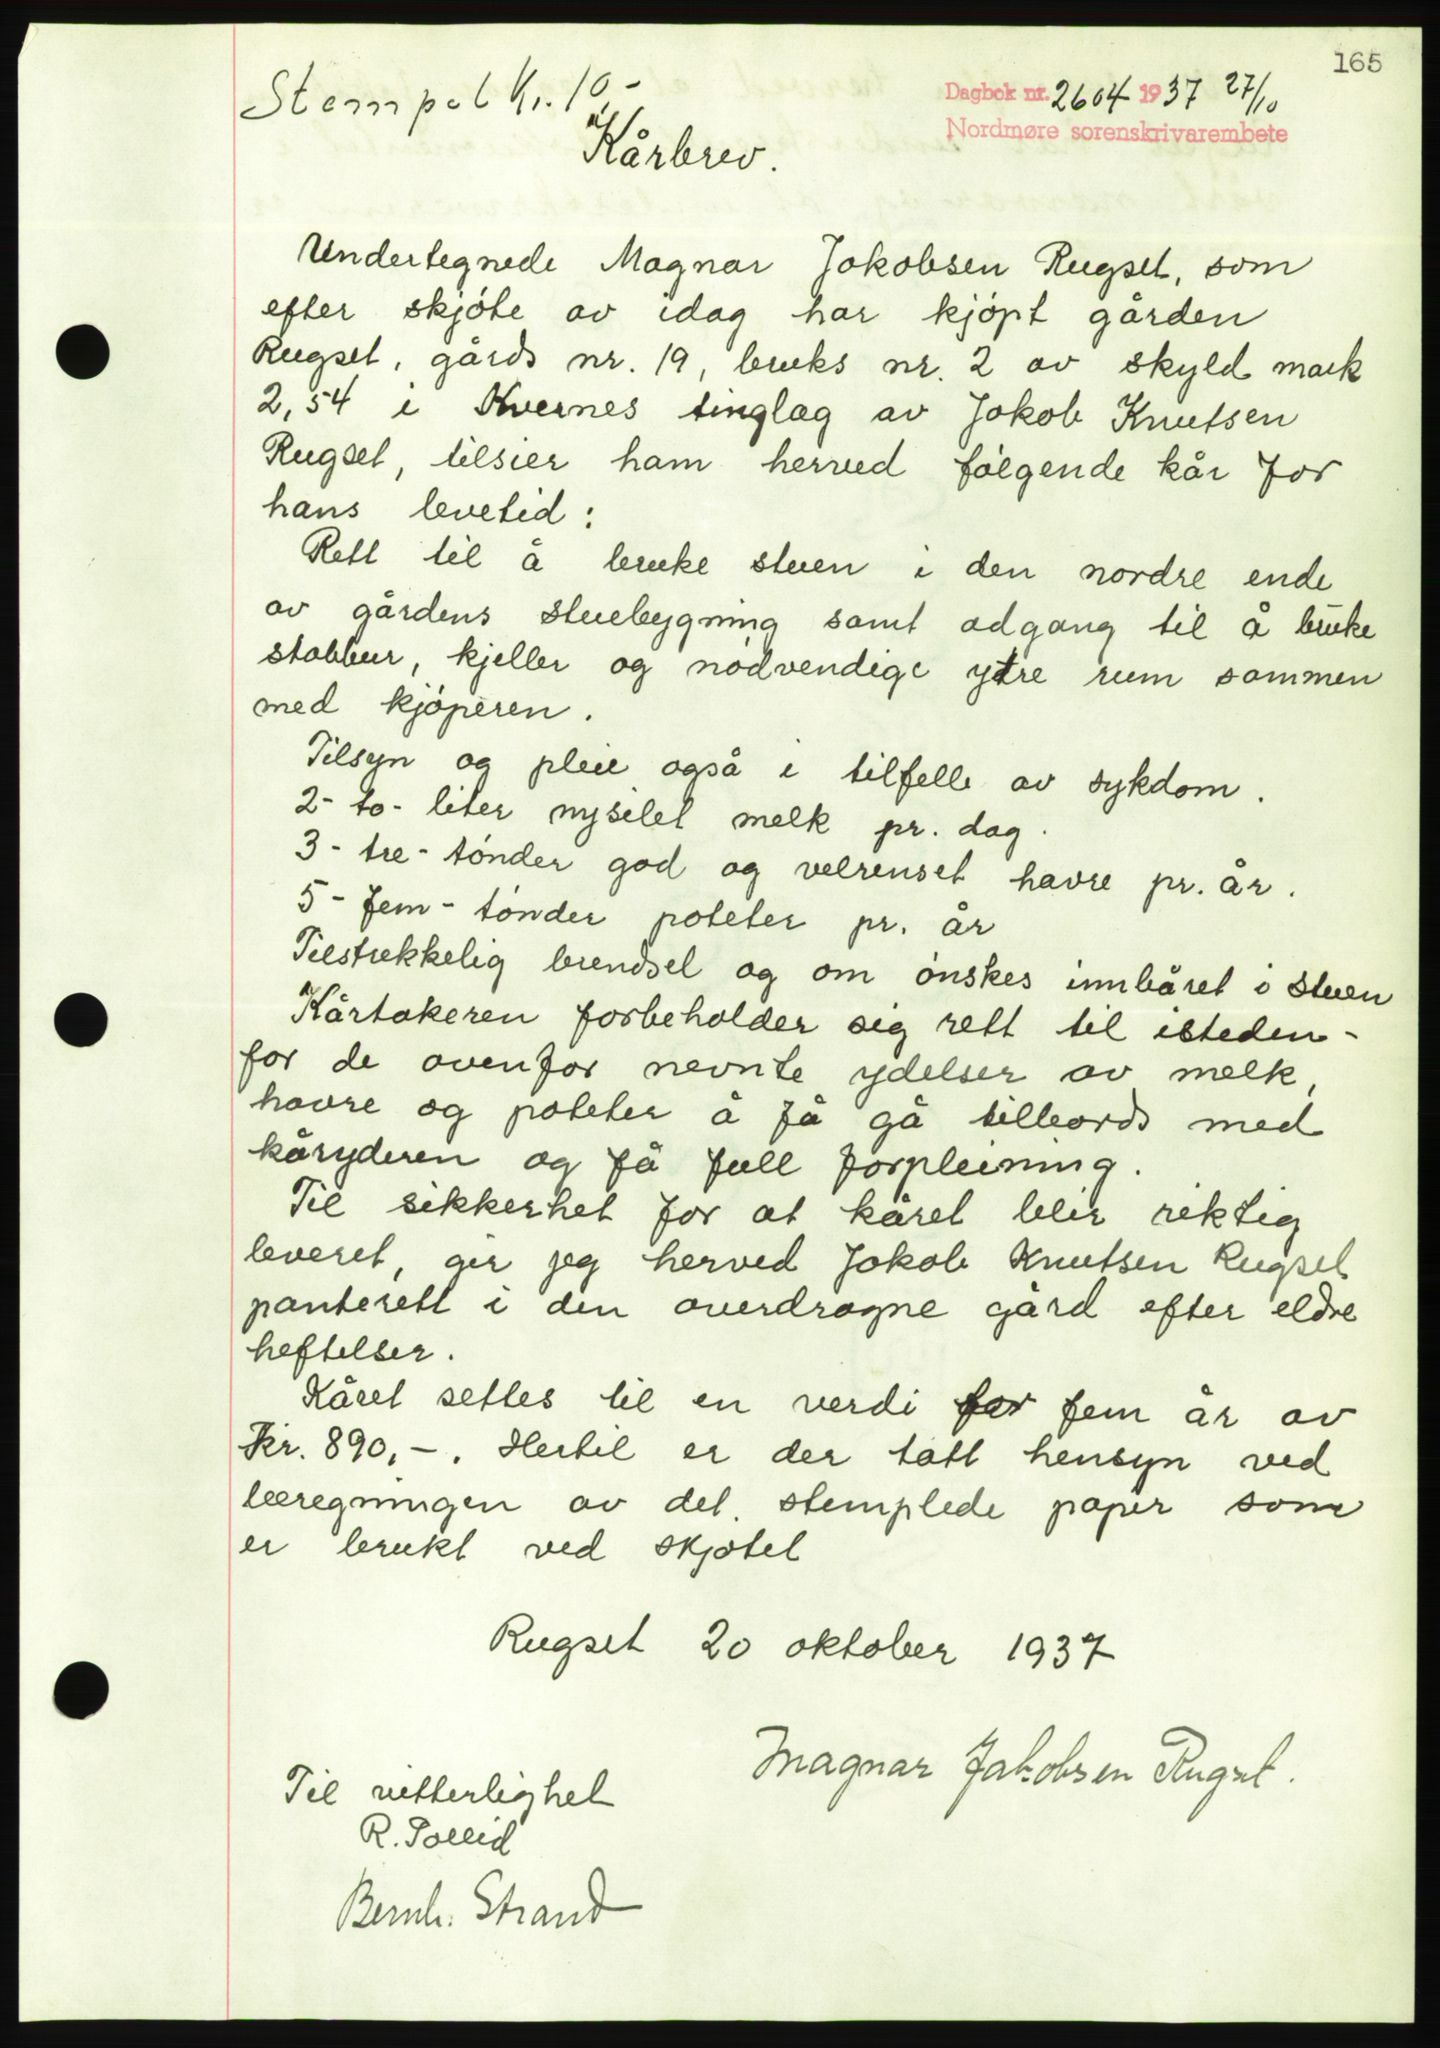 165
Stempel Kr. 10,-
Dagbok nr. 2604 1937 27/10
Nordmøre sorenskrivarembete
Kårbrev.
Undertegnede Magnar Jakobsen Rugset, som
efter skjóte av idag har kjópt gården
Rugset, gårds nr. 19, bruks nr. 2 av skyld mark
2,54 i Kvernes tinglag av Jakob Knutsen
Rugset, tilsier ham herved fólgende kår for
hans levetid:
Rett til å bruke stuen i den nordre ende
av gårdens stuebygning samt adgang til å bruke
stabbur, kjeller og nódvendige ytre rum sammen
med kjóperen.
Tilsyn og pleie også i tilfelle av sykdom.
2- to- liter nysilet melk pr. dag.
3- tre- tónder god og velrenset havre pr. år.
5- fem- tónder poteter pr. år
Tilstrekkelig brendsel og om ónskes innbåret i stuen
Kårtakeren forbeholder sig rett til isteden-
for de ovenfor nevnte ydelser av melk,
havre og poteter å få gå tilbords med
kåryderen og få full forpleining.
Til sikkerhet for at kåret blir riktig
leveret, gir jeg herved Jakob Knutsen Rugset
panterett i den overdragne gård efter eldre
heftelser.
Kåret settes til en verdi for fem år av
Kr. 890,-. Hertil er der tatt hensyn ved
beregningen av det stemplede papir som
er brukt ved skjøtet
Rugset 20 oktober 1937
Magnar Jakobsen Rugset.
Til vitterlighet
R. Pollid
Bernh. Strand